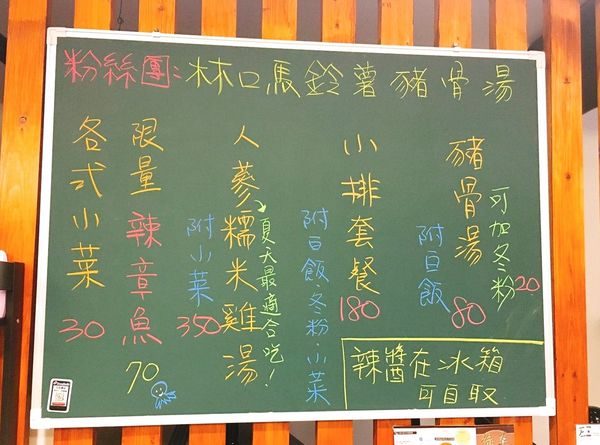 粉絲團：林口馬鈴薯豬骨湯
豬骨湯 80
附白飯
可加冬粉20
小排套餐 180
附白飯.冬粉.小菜
人蔘糯米雞湯 350
夏天最適合吃！
附小菜
限量辣章魚 70
各式小菜 30
辣醬在冰箱
可自取